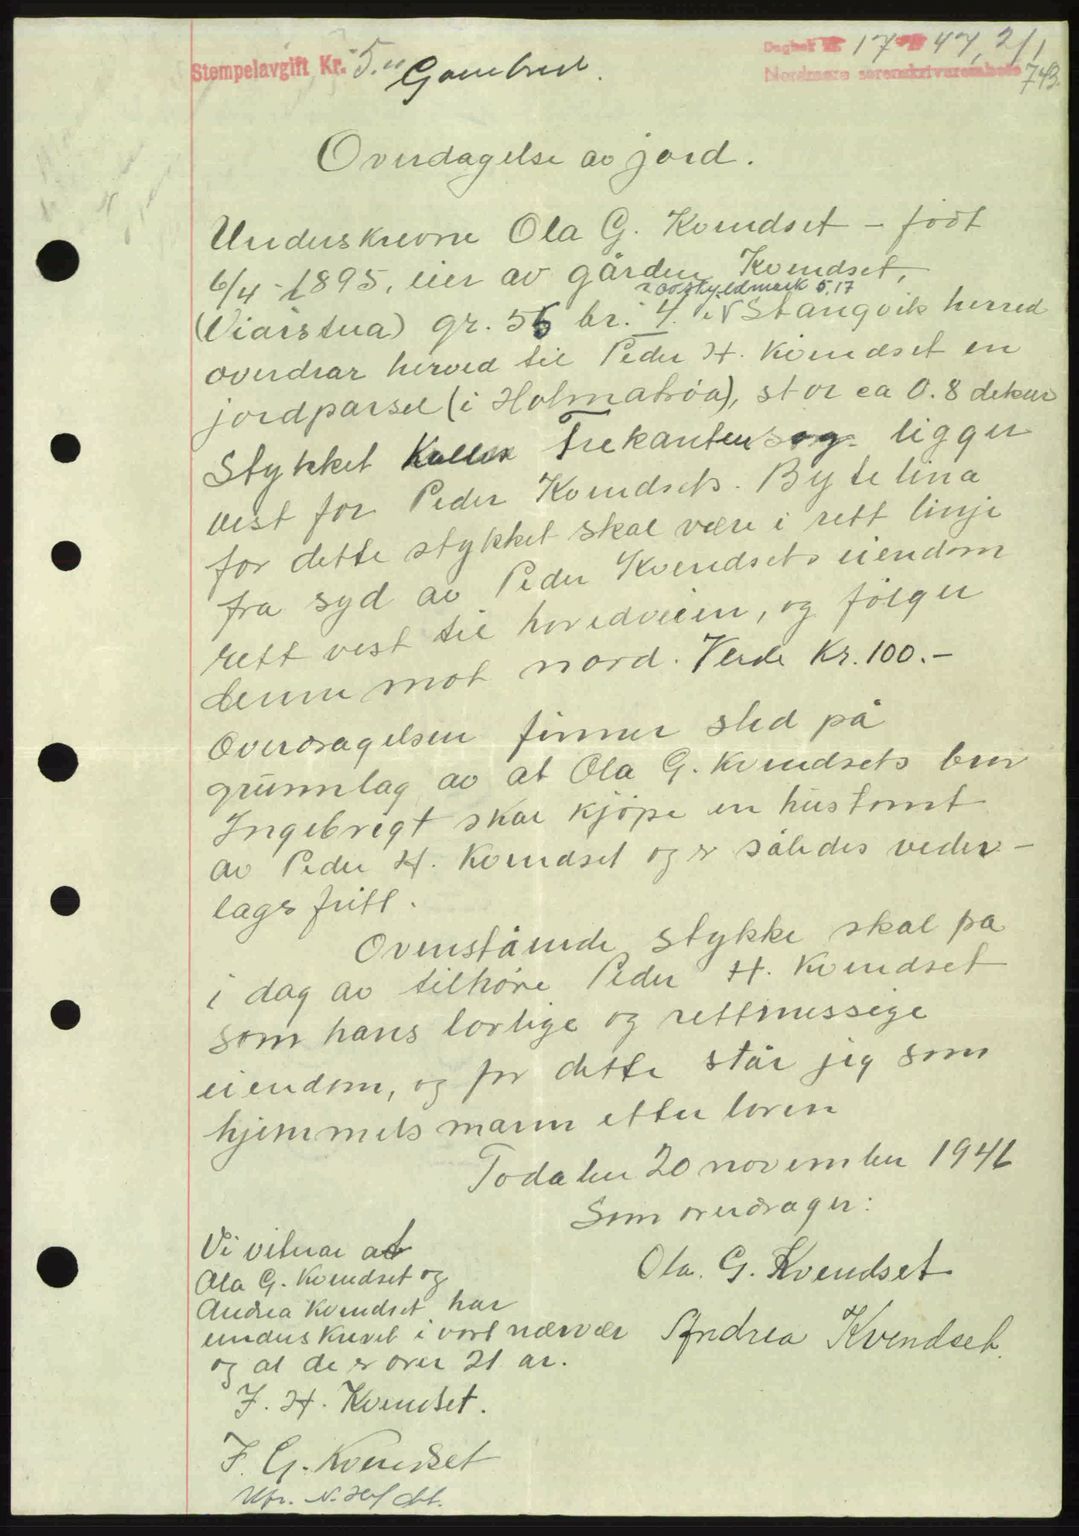 Dagbok nr 17 - 47, 2/1
Stempelavgift Kr. 5.
Nordmøre sorenskrivarembete 743.
Gavebrev.
Overdagelse av jord.
Underskrevne Ola G. Kvendset – født
6/4 - 1895, eier av gården Kvendset,
skyldmark 5,17
(Viarstua) gr. 56 br. 4. i Stangvik herred
overdrar herved til Peder H. Kvendset en
jordparsel (i Holmatrøa), stor ca 0.8 dekar
Stykket kalles Trekanten og ligger
vest for Peder Kvendsets. Bytelina
for dette stykket skal være i rett linje
fra syd av Peder Kvendsets eiendom
rett vest til hovedveien, og følger
denne mot nord. Verde Kr. 100.-
Overdragelsen finner sted på
grunnlag av at Ola G. Kvendsets bror
Ingebrigt skal kjøpe en hustomt
av Peder H. Kvendset og er således veder-
lagsfritt.
Ovenstående stykke skal fra
i dag av tilhøre Peder H. Kvendset
som hans lovlige og rettmessige
eiendom, og for dette står jeg som
hjemmelsmann etter loven
Todalen 20 november 1946
Som overdrager:
Vi vitner at
Ola G. Kvendset og
Andrea Kvendset har
underskrevet i vort nærvær
og at de er over 21 år.
Ola. G. Kvendset
Andrea Kvendset.
J. H. Kvendset.
I. G. Kvendset